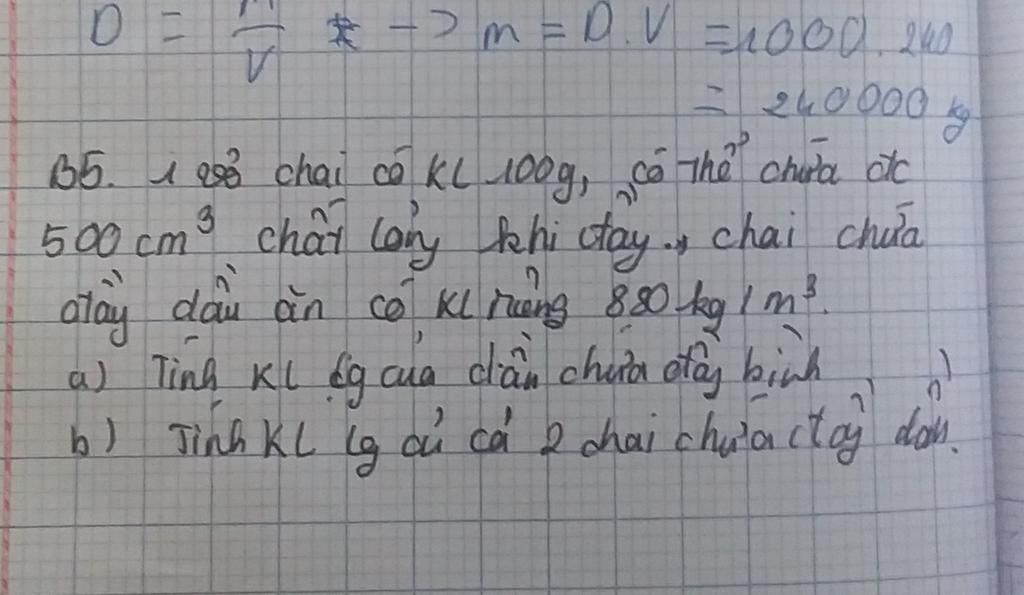 D = m/V → m = D.V = 1000.240
= 240000 kg
B5. 1 chai có KL 100g, có thể chứa đc
500 cm³ chất lỏng khi đầy., chai chứa
đầy dầu ăn có KL riêng 880 kg/m³.
a) Tính KLg của dầu chứa đầy bình
b) Tính KLg củ cả 2 chai chứa đầy dầu.